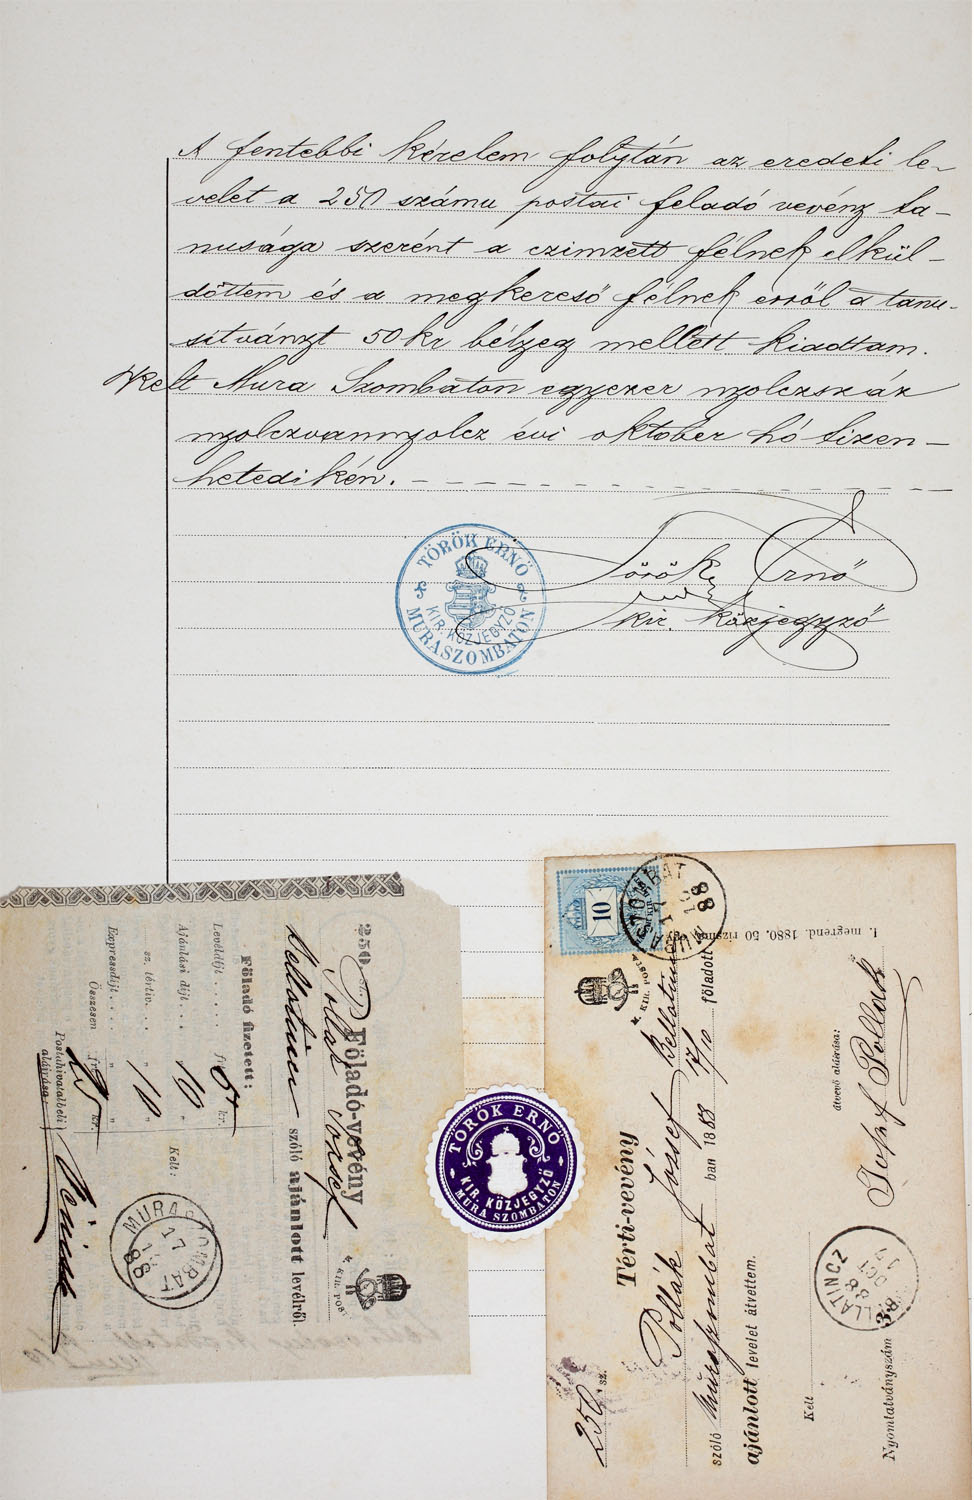 A fentebbi kérelem folytán az eredeti le-
velet a 250 számu postai feladó vevény ta-
nusága szerént a czimzett félnek elkül-
döttem és a megkereső félnek erről a tanu-
sitványt 50 kr bélyeg mellett kiadtam.
Kelt Mura Szombaton egyezer nyolczszáz
nyolczvannyolcz évi október hó tizen-
hetedikén.
Török Ernő
kir. közjegyző
TÖRÖK ERNŐ
KIR. KÖZJEGYZŐ
MURASZOMBATON
250 sz. Föladó-vevény
Pollak József
Bellatincz szóló ajánlott levélről.
M. KIR. POSTA
Föladó fizetett:
Levéldíjt . . . frt 5 kr.
Ajánlási díjt . . . „ 10 „
„ sz. tértiv. . . . „ 10 „
Expressdíjt . . . . „ „
Összesen frt 25 kr.
Kelt:
Postahivatalbeli
aláirása:
MURASZOMBAT
17
10
88
TÖRÖK ERNŐ
KIR. KÖZJEGYZŐ
MURA SZOMBATON
I. megrend. 1880. 50 rizsma.
10
MURASZOMBAT
17
10
88
M. KIR. POSTA
250 sz.
Térti-vevény
Pollák József Bellatincz
szóló Muraszombat ban 1888 17/10 föladott
ajánlott levelet átvettem.
Kelt
átvevő aláirása:
Josef Pollak
BELLATINCZ
17
OCT
88
Nyomtatványszám 38.